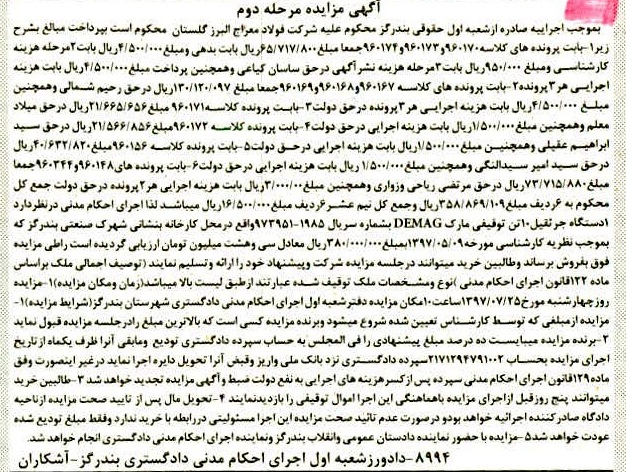 آگهی مزایده مرحله دوم
بموجب اجراییه صادره ازشعبه اول حقوقی بندرگز محکوم علیه شرکت فولاد معراج البرز گلستان محکوم است بپرداخت مبالغ بشرح
زیر۱-بابت پرونده های کلاسه ۹۶۰۱۷۰و۹۶۰۱۷۳و۹۶۰۱۷۴جمعا مبلغ ۶۵/۷۱۷/۸۰۰ریال بابت بدهی ومبلغ ۴/۵۰۰/۰۰۰ریال بابت۲مرحله هزینه
کارشناسی ومبلغ ۹۵۰/۰۰۰ریال بابت۳مرحله هزینه نشرآگهی درحق ساسان کیاعی وهمچنین پرداخت مبلغ ۴/۵۰۰/۰۰۰ریال بابت هزینه
اجرایی هر۳پرونده۲-بابت پرونده های کلاسه ۹۶۰۱۶۷و۹۶۰۱۶۸و۹۶۰۱۶۹جمعا مبلغ ۱۳۰/۱۲۰/۰۹۷ریال درحق رحیم شمالی وهمچنین
مبلغ ۴/۵۰۰/۰۰۰ریال بابت هزینه اجرایی هر۳پرونده درحق دولت۳-بابت پرونده کلاسه ۹۶۰۱۷۱مبلغ ۲۱/۶۶۵/۶۵۶ریال درحق میلاد
معلم وهمچنین مبلغ۱/۵۰۰/۰۰۰ریال بابت هزینه اجرایی درحق دولت۴-بابت پرونده کلاسه ۹۶۰۱۷۲مبلغ ۲۱/۵۶۶/۸۵۶ریال درحق سید
ابراهیم عقیلی وهمچنین مبلغ۱/۵۰۰/۰۰۰ریال بابت هزینه اجرایی درحق دولت۵-بابت پرونده کلاسه ۹۶۰۱۵۶مبلغ ۴۰/۶۳۲/۸۲۰ریال
درحق سید امیر سیدالنگی وهمچنین مبلغ۱/۵۰۰/۰۰۰ ریال بابت هزینه اجرایی درحق دولت۶-بابت پرونده های۹۶۰۱۴۸و۹۶۰۳۴۴جمعا
مبلغ۷۳/۷۱۵/۸۸۰ریال درحق مرتضی ریاحی وزواری وهمچنین مبلغ۳/۰۰۰/۰۰۰ریال بابت هزینه اجرایی هر۲پرونده درحق دولت جمع کل
محکوم به ۶ردیف مبلغ۳۵۸/۸۶۹/۱۰۹ریال وجمع کل نیم عشر۶ردیف مبلغ۱۶/۵۰۰/۰۰۰ریال میباشد لذا اجرای احکام مدنی درنظردارد
۱دستگاه جرثقیل۱۰تن توقیفی مارک DEMAG بشماره سریال ۱۹۸۵-۹۷۳۹۵۱واقع درمحل کارخانه بنشانی شهرک صنعتی بندرگز که
بموجب نظریه کارشناسی مورخه۱۳۹۷/۰۵/۰۹بمبلغ۳۸۰/۰۰۰/۰۰۰ریال معادل سی وهشت میلیون تومان ارزیابی گردیده است راطی مزایده
فوق بفروش برساند وطالبین خرید میتوانند درجلسه مزایده شرکت وپیشنهاد خود را ارائه وتسلیم نمایند (توصیف اجمالی ملک براساس
ماده ۱۲۲قانون اجرای احکام مدنی )نوع ومشخصات ملک توقیف شده عبارتند ازطبق لیست بالا میباشد(زمان ومکان مزایده)۱-مزایده
روزچهارشنبه مورخ۱۳۹۷/۰۷/۲۵ساعت۱۰امکان مزایده دفترشعبه اول اجرای احکام مدنی دادگستری شهرستان بندرگز(شرایط مزایده)۱-
مزایده ازمبلغی که توسط کارشناس تعیین شده شروع میشود وبرنده مزایده کسی است که بالاترین مبلغ رادرجلسه مزایده قبول نماید
۲-برنده مزایده میبایست ده درصد مبلغ پیشنهادی را فی المجلس به حساب سپرده دادگستری تودیع ومابقی آنرا ظرف یکماه ازتاریخ
اجرای مزایده بحساب ۲۱۷۱۲۹۴۷۹۱۰۰۲سپرده دادگستری نزد بانک ملی واریز وقبض آنرا تحویل دایره اجرا نماید درغیر اینصورت وفق
ماده۱۲۹قانون اجرای احکام مدنی سپرده پس ازکسرهزینه های اجرایی به نفع دولت ضبط وآگهی مزایده تجدید خواهد شد ۳-طالبین خرید
میتوانند پنج روزقبل ازاجرای مزایده باهماهنگی این اجرا اموال توقیفی را بازدیدنمایند ۴-تحویل مال پس از تایید صحت مزایده ازناحیه
دادگاه صادرکننده اجرائیه خواهد بودو درصورت عدم تائید صحت مزایده این اجرا مسئولیتی دررابطه با خرید ندارد وفقط مبلغ تودیع شده
عودت خواهد شد۵-مزایده با حضور نماینده دادستان عمومی وانقلاب بندرگز ونماینده اجرای احکام مدنی دادگستری انجام خواهد شد.
۸۹۹۴-دادورزشعبه اول اجرای احکام مدنی دادگستری بندرگز-آشکاران